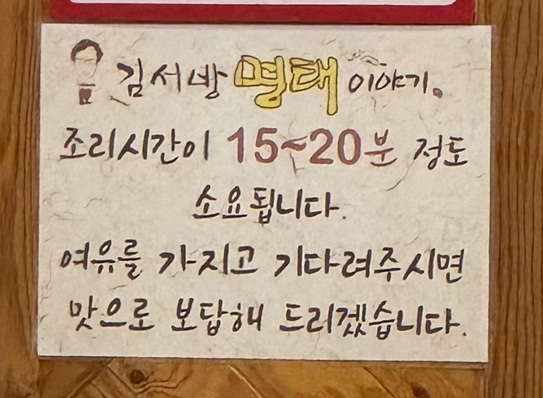 김서방 명태 이야기.
조리시간이 15~20분 정도
소요됩니다.
여유를 가지고 기다려주시면
맛으로 보답해 드리겠습니다.